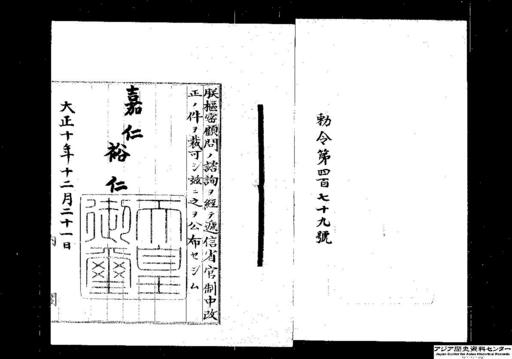 勅令第四百七十九號
朕樞密顧問ノ諮詢ヲ經テ遞信省官制中改
正ノ件ヲ裁可シ玆ニ之ヲ公布セシム
嘉仁
裕仁
天皇
御璽
大正十年十二月二十一日
内
閣
アジア歴史資料センター
Japan Center for Asian Historical Records